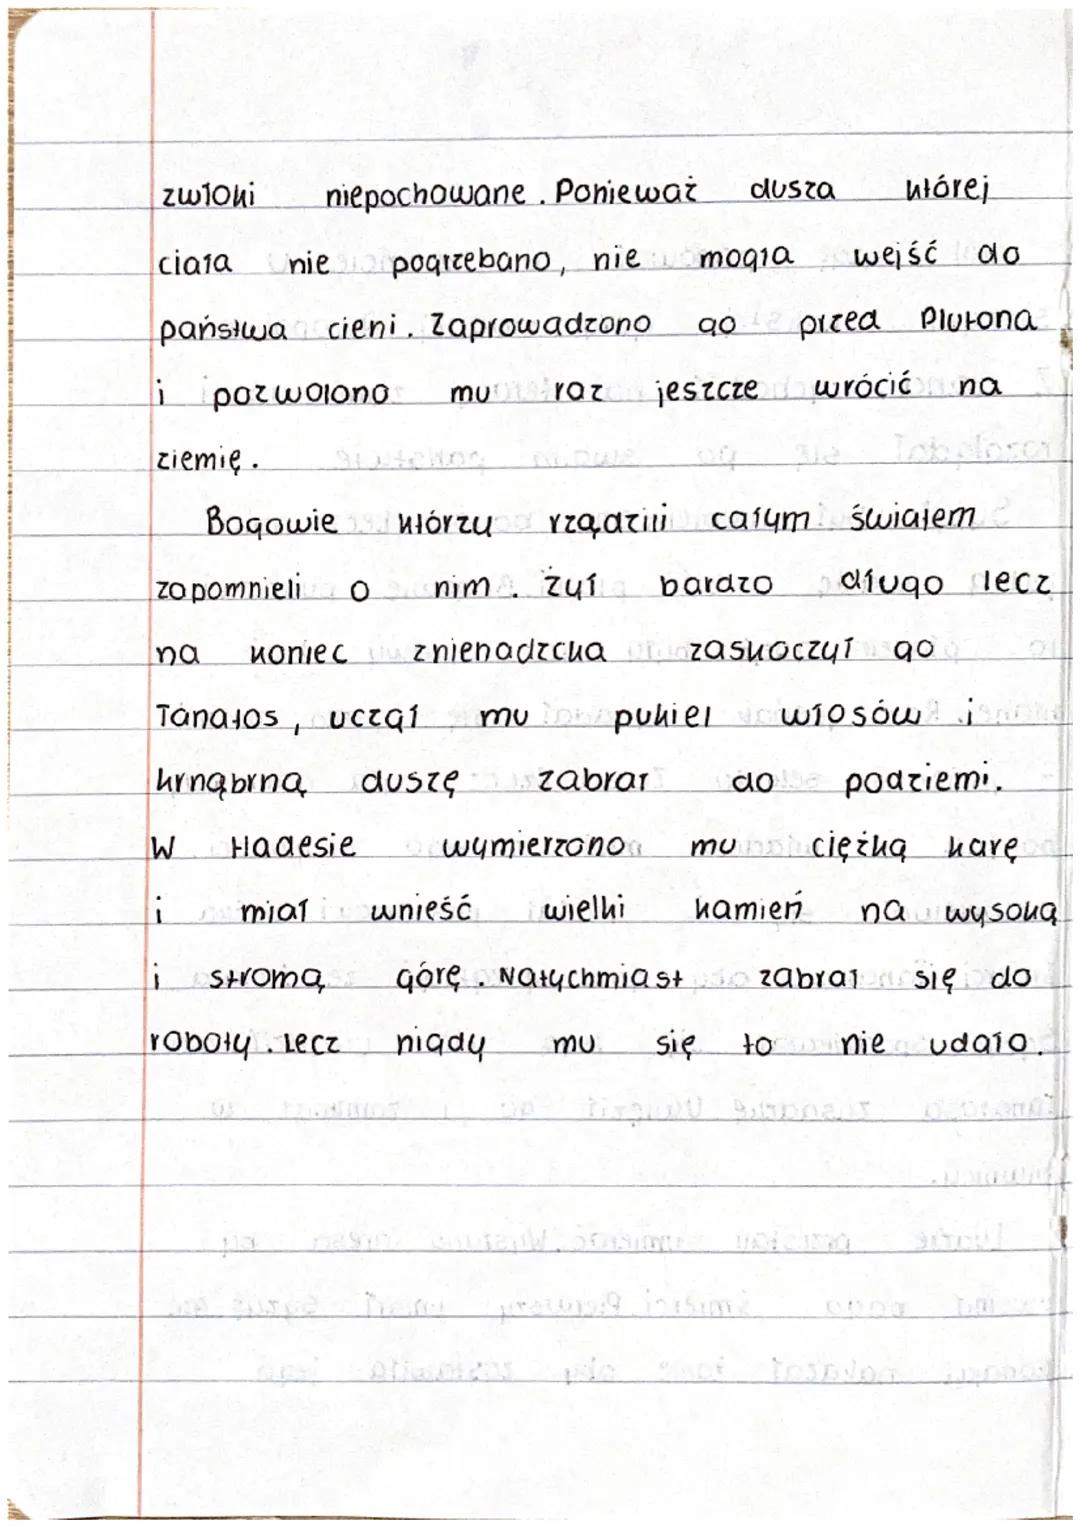 zwłoki niepochowane. Ponieważ dusza której
ciała nie pogrzebano, nie mogła wejść do
państwa cieni. Zaprowadzono go przed Plutona
i pozwolono mu raz jeszcze wrócić na
ziemię.
Bogowie którzy rządzili całym światem
zapomnieli o nim. Żył bardzo długo lecz
na koniec znienadzcka zaskoczył go
Tanatos, uczął mu pukiel włosów i
krnąbrną duszę zabrał do podziemi.
W Hadesie wymierzono mu ciężką karę
i miał wnieść wielki kamień na wysoką
i stromą górę. Natychmiast zabrał się do
roboty. Lecz nigdy mu się to nie udało.